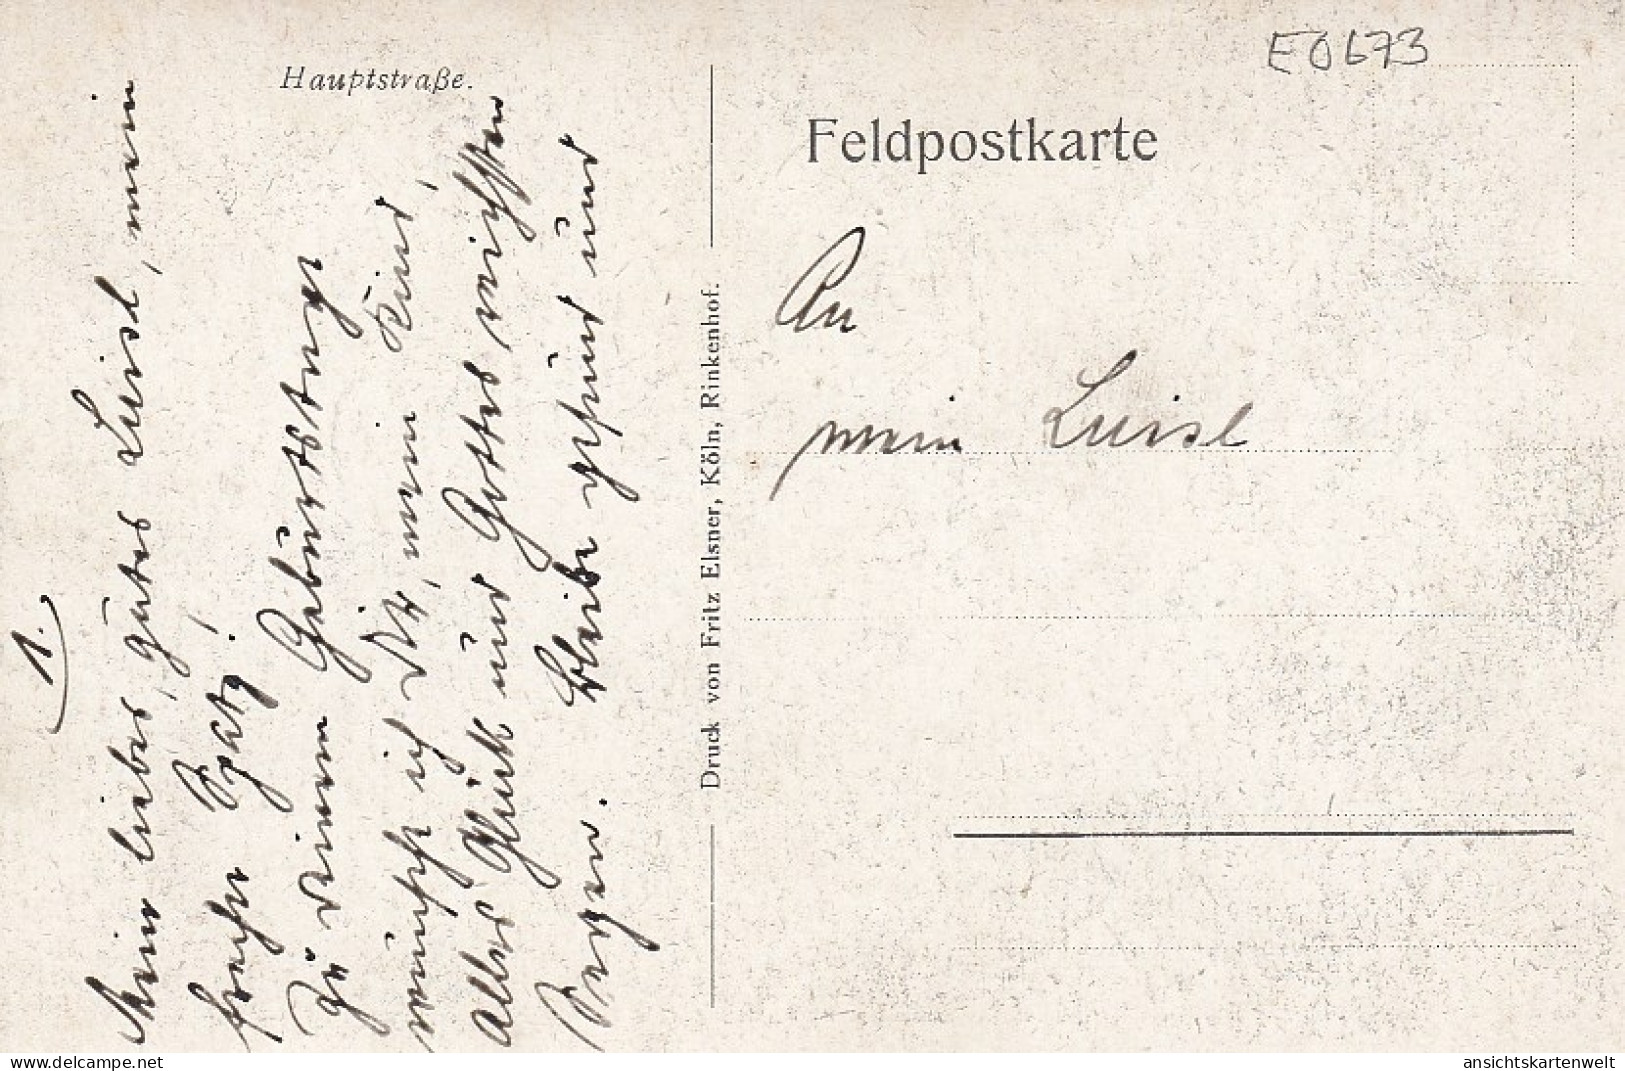 Hauptstraße.
1.
Mein liebes, gutes Luisl, mein
Spatz!
Zu deinem Geburtstage
wünsche ich Dir, mein Kind,
alles Glück und Gottes reichsten
Segen. Bleibe gesund und
Druck von Fritz Elsner, Köln, Rinkenhof.
E0673
Feldpostkarte
An
mein Luisl
delcampe.net
ansichtskartenwelt